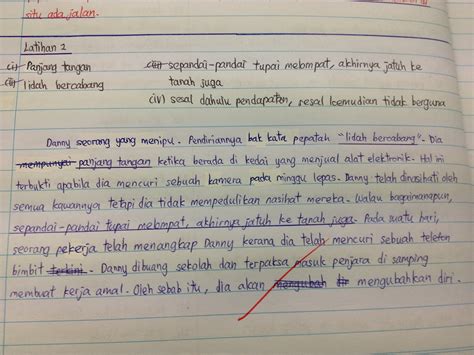 situ ada jalan.
Latihan 2
(i) Panjang tangan
(iii) sepandai-pandai tupai melompat, akhirnya jatuh ke
(ii) lidah bercabang
tanah juga
(iv) sesal dahulu pendapatan, sesal kemudian tidak berguna
Danny seorang yang menipu. Pendiriannya bak kata pepatah "lidah bercabang". Dia
mempunyai panjang tangan ketika berada di kedai yang menjual alat elektronik. Hal ini
terbukti apabila dia mencuri sebuah kamera pada minggu lepas. Danny telah dinasihati oleh
semua kawannya tetapi dia tidak mempedulikan nasihat mereka. Walau bagaimanapun,
sepandai-pandai tupai melompat, akhirnya jatuh ke tanah juga. Pada suatu hari,
seorang pekerja telah menangkap Danny kerana dia telah mencuri sebuah telefon
bimbit terkini. Danny dibuang sekolah dan terpaksa masuk penjara di samping
membuat kerja amal. Oleh sebab itu, dia akan mengubah dir mengubahkan diri.